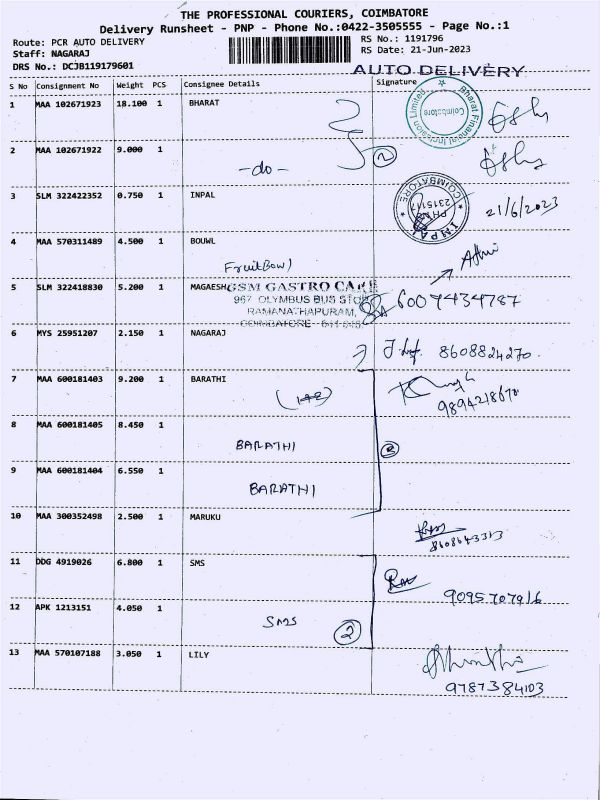 THE PROFESSIONAL COURIERS, COIMBATORE
Delivery Runsheet - PNP - Phone No.:0422-3505555 - Page No.:1
Route: PCR AUTO DELIVERY
RS No.: 1191796
Staff: NAGARAJ
RS Date: 21-Jun-2023
DRS No.: DCJB119179601
AUTO DELIVERY
S No Consignment No Weight PCS Consignee Details Signature
1 MAA 102671923 18.100 1 BHARAT
Bharat Financial Inclusion Limited
Coimbatore
2 MAA 102671922 9.000 1
-do-
2
3 SLM 322422352 0.750 1 INPAL
COIMBATORE
21/6/2023
4 MAA 570311489 4.500 1 BOUWL
FruitBowl
5 SLM 322418830 5.200 1 MAGAESH
GSM GASTRO CARE
967 OLYMBUS BUS STOP
RAMANATHAPURAM,
COIMBATORE - 641 045
6007434787
6 MYS 25951207 2.150 1 NAGARAJ
8608824270.
7 MAA 600181403 9.200 1 BARATHI
9894218670
8 MAA 600181405 8.450 1
BARATHI
3
9 MAA 600181404 6.550 1
BARATHI
10 MAA 300352498 2.500 1 MARUKU
8608643313
11 DDG 4919026 6.800 1 SMS
9095707916
12 APK 1213151 4.050 1
SMS
2
13 MAA 570107188 3.050 1 LILY
9787384103